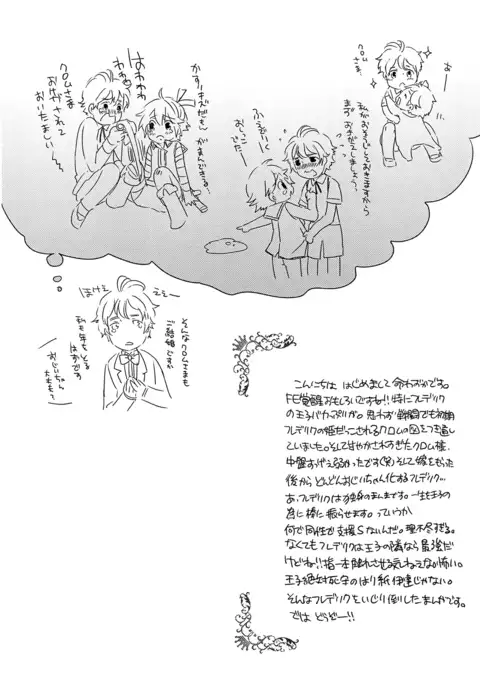 おー
クロム
さまー
私がおそうじしておきますから
まず お手がえしましょう。
ふぇぇ〜く
おしっこ
でたー
かすりキズだもん
がまんできる…
おわわわ
わわわ
クロムさま
おけがされて
おいたましい〜〜
えぇー
ほけぇ
そんなクロムさまも
ご結婚ですか
私も年をとる
はずです
おじいちゃん
大丈夫?
こんにちは はじめまして 命わずかです。
FE覚醒おもしろいですね!!特にフレデリク
の王子バカっぷりが。思わず戦闘でも初期
フレデリクの姫だっこされるクロムの図をつき通し
ていました。そして甘やかされすぎたクロム様、
中盤すげえ弱かったです(笑)そして嫁をもらった
後からどんどんおじいちゃん化するフレデリク…
あ、フレデリクは独身のまんまです。一生を王子の
為に棒に振らせます。っていうか
何で同性で支援Sないんだ。理不尽すぎる。
なくてもフレデリクは王子の隣なら最強だ
けどね!!指一本触れさせる気ねえな怖い。
王子絶対死守のはり紙伊達じゃない。
そんなフレデリクをいじり倒したまんがです。
では どうぞー!!